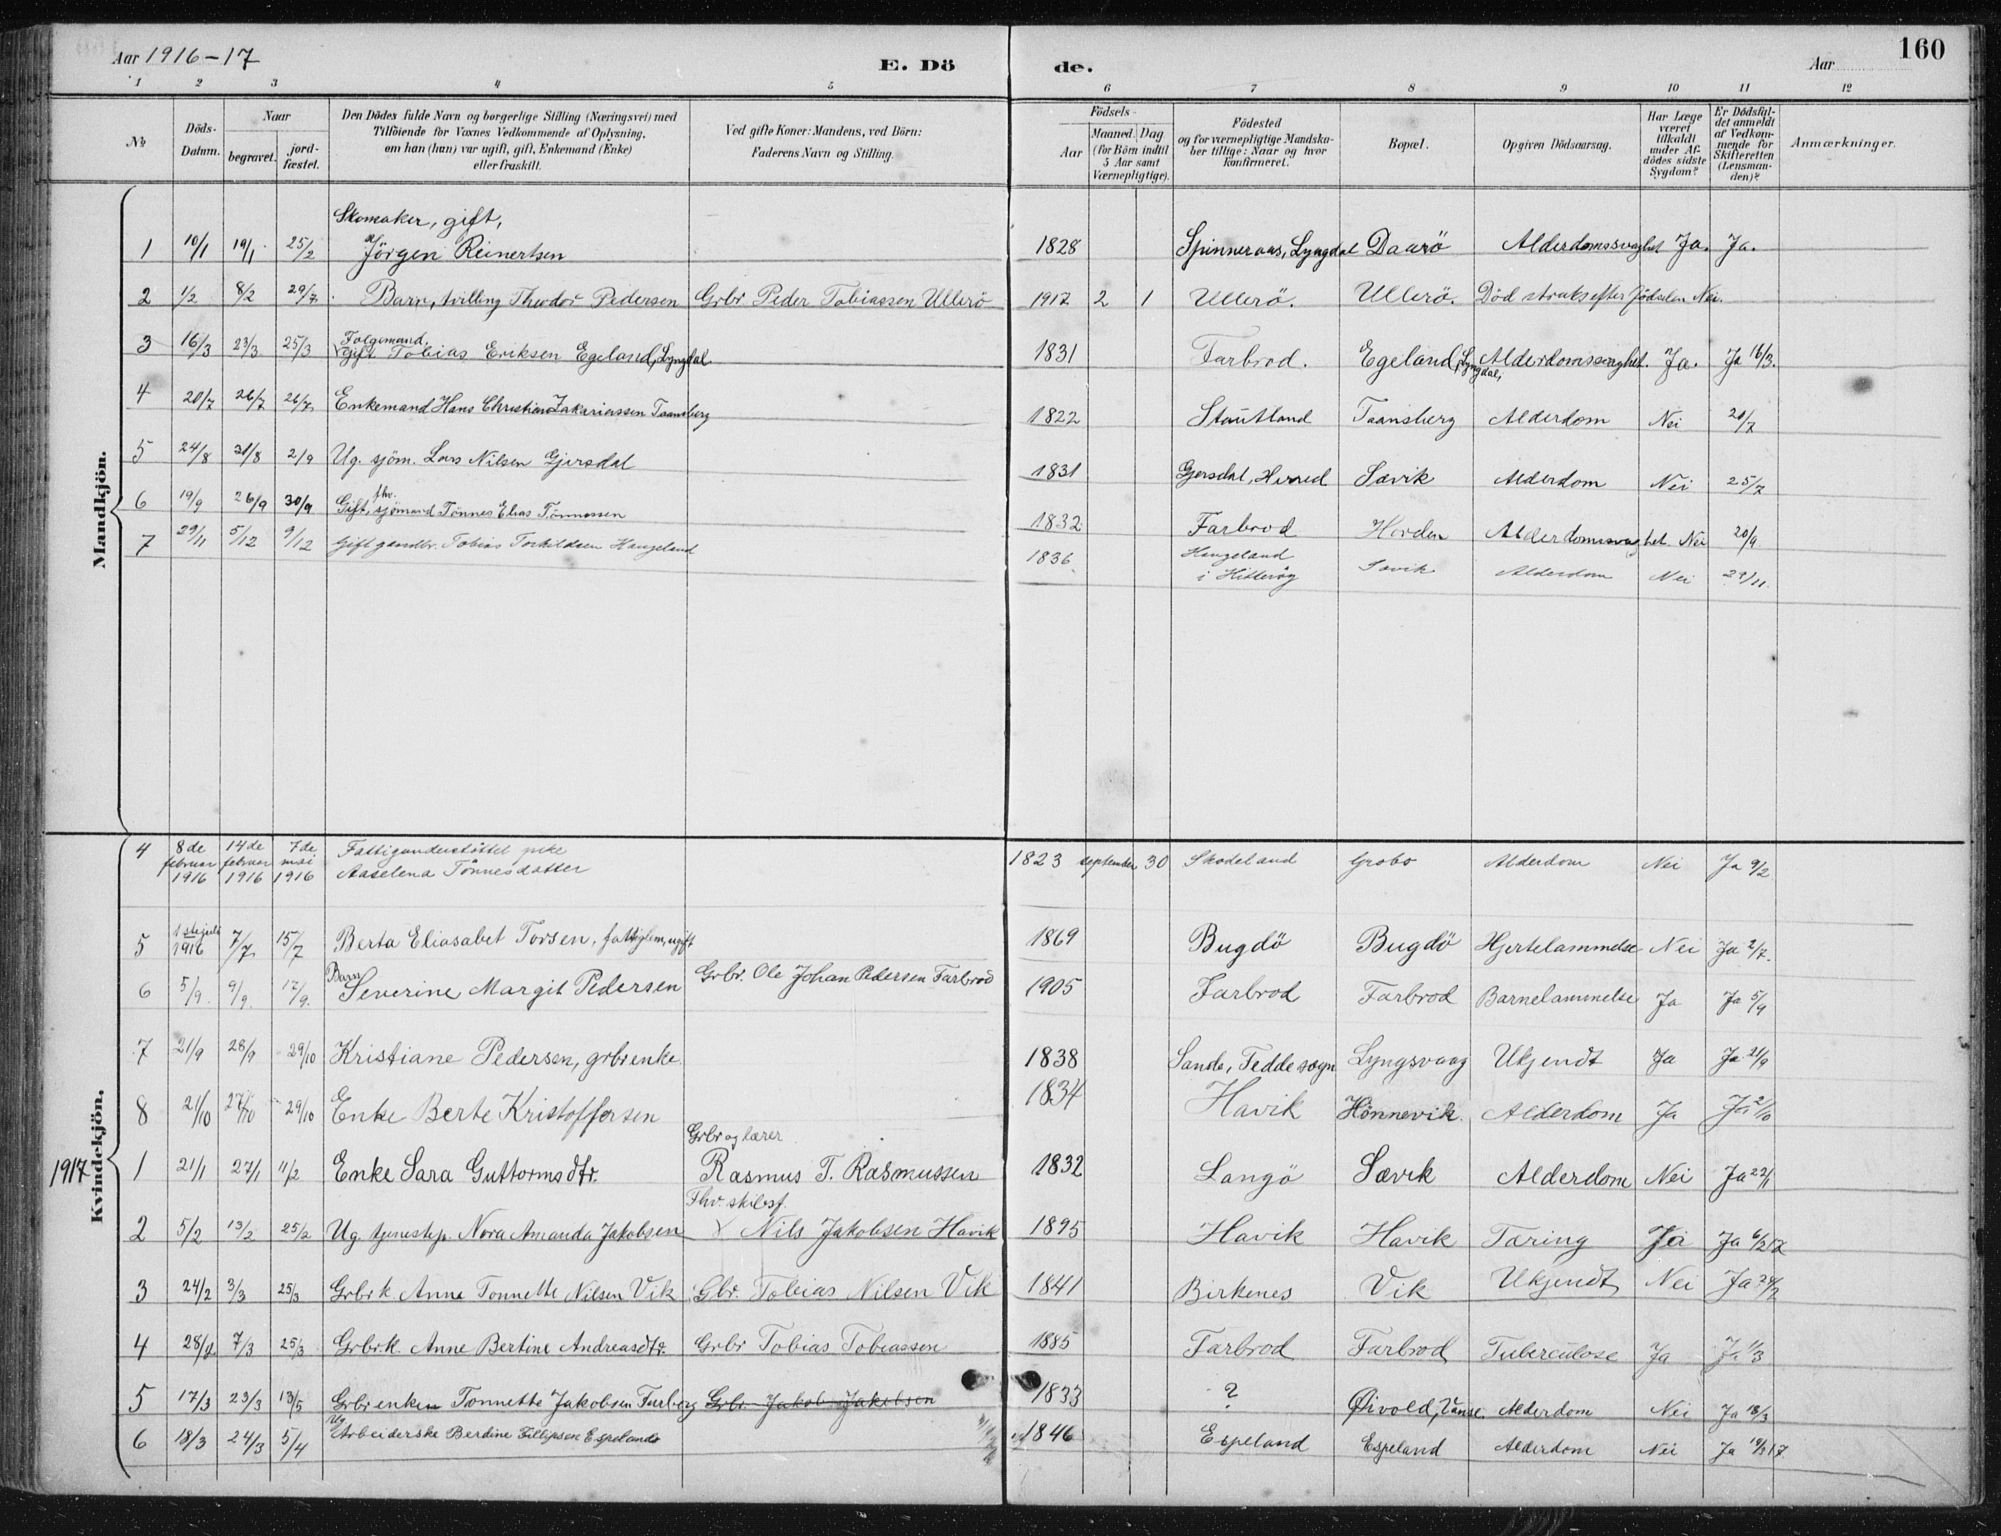 Aar 1916-17
E. Dö
de.
Aar
160
1 2 3 4 5 6 7 8 9 10 11 12
No
Döds-Datum.
Naar
begravet.
jord-fæstet.
Den Dödes fulde Navn og borgerlige Stilling (Næringsvei) med
Tilföiende for Voxnes Vedkommende af Oplysning,
om han (hun) var ugift, gift, Enkemand (Enke)
eller fraskilt.
Ved gifte Koner: Mandens, ved Börn:
Faderens Navn og Stilling.
Födsels-
Aar
Maaned. Dag
(for Börn indtil
5 Aar samt
Værnepligtige).
Födested
og for værnepligtige Mandska-
ber tillige: Naar og hvor
konfirmeret.
Bopæl.
Opgiven Dödsaarsag.
Har Læge
været
tilkaldt
under Af-
dödes sidste
Sygdom?
Er Dödsfal-
det anmeldt
af Vedkom-
mende for
Skifteretten
(Lensman-
den)?
Anmærkninger.
Mandkjön.
Skomaker, gift,
1 10/1 19/1 25/2 Jörgen Reinertsen 1828 Spinneraas, Lyngdal Daarö Alderdomssvaghet Ja. Ja.
2 1/2 8/2 29/7 Barn, tvilling Theodor Pedersen Grbr Peder Tobiassen Ullerö 1917 2 1 Ullerö. Ullerö. Död straks efter födselen Nei.
Folgemand.
3 16/3 23/3 25/3 gift Tobias Eriksen Egeland, Lyngdal 1831 Farbrod. Egeland, Lyngdal, Alderdomssvaghet. Ja. Ja 16/3.
4 20/7 26/7 26/7 Enkemand Hans Christian Zakariassen Taansberg 1822 Stautland Taansberg Alderdom Nei 20/7
5 24/8 31/8 2/9 Ug. sjöm. Lars Nilsen Gjersdal 1831 Gjersdal, Herred Sævik Alderdom Nei 25/7
fhv.
6 19/9 26/9 30/9 Gift, sjömand Tönnes Elias Tönnessen 1832 Farbrod Horden Alderdomssvaghet Nei 20/9.
7 29/11 5/12 9/12 Gift gaardbr. Tobias Torkildsen Haugeland 1836 Haugeland i Hitterög Sævik Alderdom Nei 29/11.
Kvindekjön.
4 8de februar 1916 14de februar 1916 7de mai 1916 Fattigunderstöttet pike
Aaselena Tönnesdatter 1823 september 30 Skodeland Grobo Alderdom Nei Ja 9/2
5 1ste juli 1916 7/7 15/7 Berta Eliasabet Torsen, fattiglem, ugift 1869 Bugdö Bugdö Hjertelammelse Nei Ja 2/7.
Barn
6 5/9. 9/9. 17/9. Severine Margit Pedersen Grbr. Ole Johan Pedersen Farbrod 1905 Farbrod Farbrod Barnelammelse Ja Ja 5/9
7 21/9 28/9 29/10 Kristiane Pedersen, grbrenke. 1838 Sande, Fedde sogn Lyngsvaag Ukjendt Ja Ja 21/9
8 21/10 27/10 29/10 Enke Berte Kristoffersen 1834 Havik Hönnevik. Alderdom Ja Ja 21/10
Grbr og lærer
1917 1 21/1 27/1 11/2 Enke Sara Guttormsdtr. Rasmus T. Rasmussen 1832 Langö Sævik Alderdom Nei Ja 22/1
Fhv. skibsf.
2 5/2 13/2 25/2 Ug. tjenestep. Nora Amanda Jakobsen Nils Jakobsen Havik 1895 Havik Havik Tæring Ja Ja 6/2 17
3 24/2 3/3 25/3 Grbrk. Anne Tonnette Nilsen Vik Gbr. Tobias Nilsen Vik 1841 Birkenes Vik Ukjendt Nei Ja 24/2
4 28/2. 7/3 25/3 Grbr.k. Anne Bertine Andreasdtr. Grbr Tobias Tobiassen 1885 Farbrod Farbrod Tuberculose Ja Ja 1/3
5 17/3 23/3 13/5 Grbrenken Tonnette Jakobsen Furberg Grbr. Jakob Jakobsen 1833 ? Øivold, Vanse. Alderdom Nei Ja 18/3
Ug
6 18/3 24/3 5/4 Arbeiderske Berdine Fillipsen Espeland 1846 Espeland Espeland Alderdom Nei Ja 19/3 17